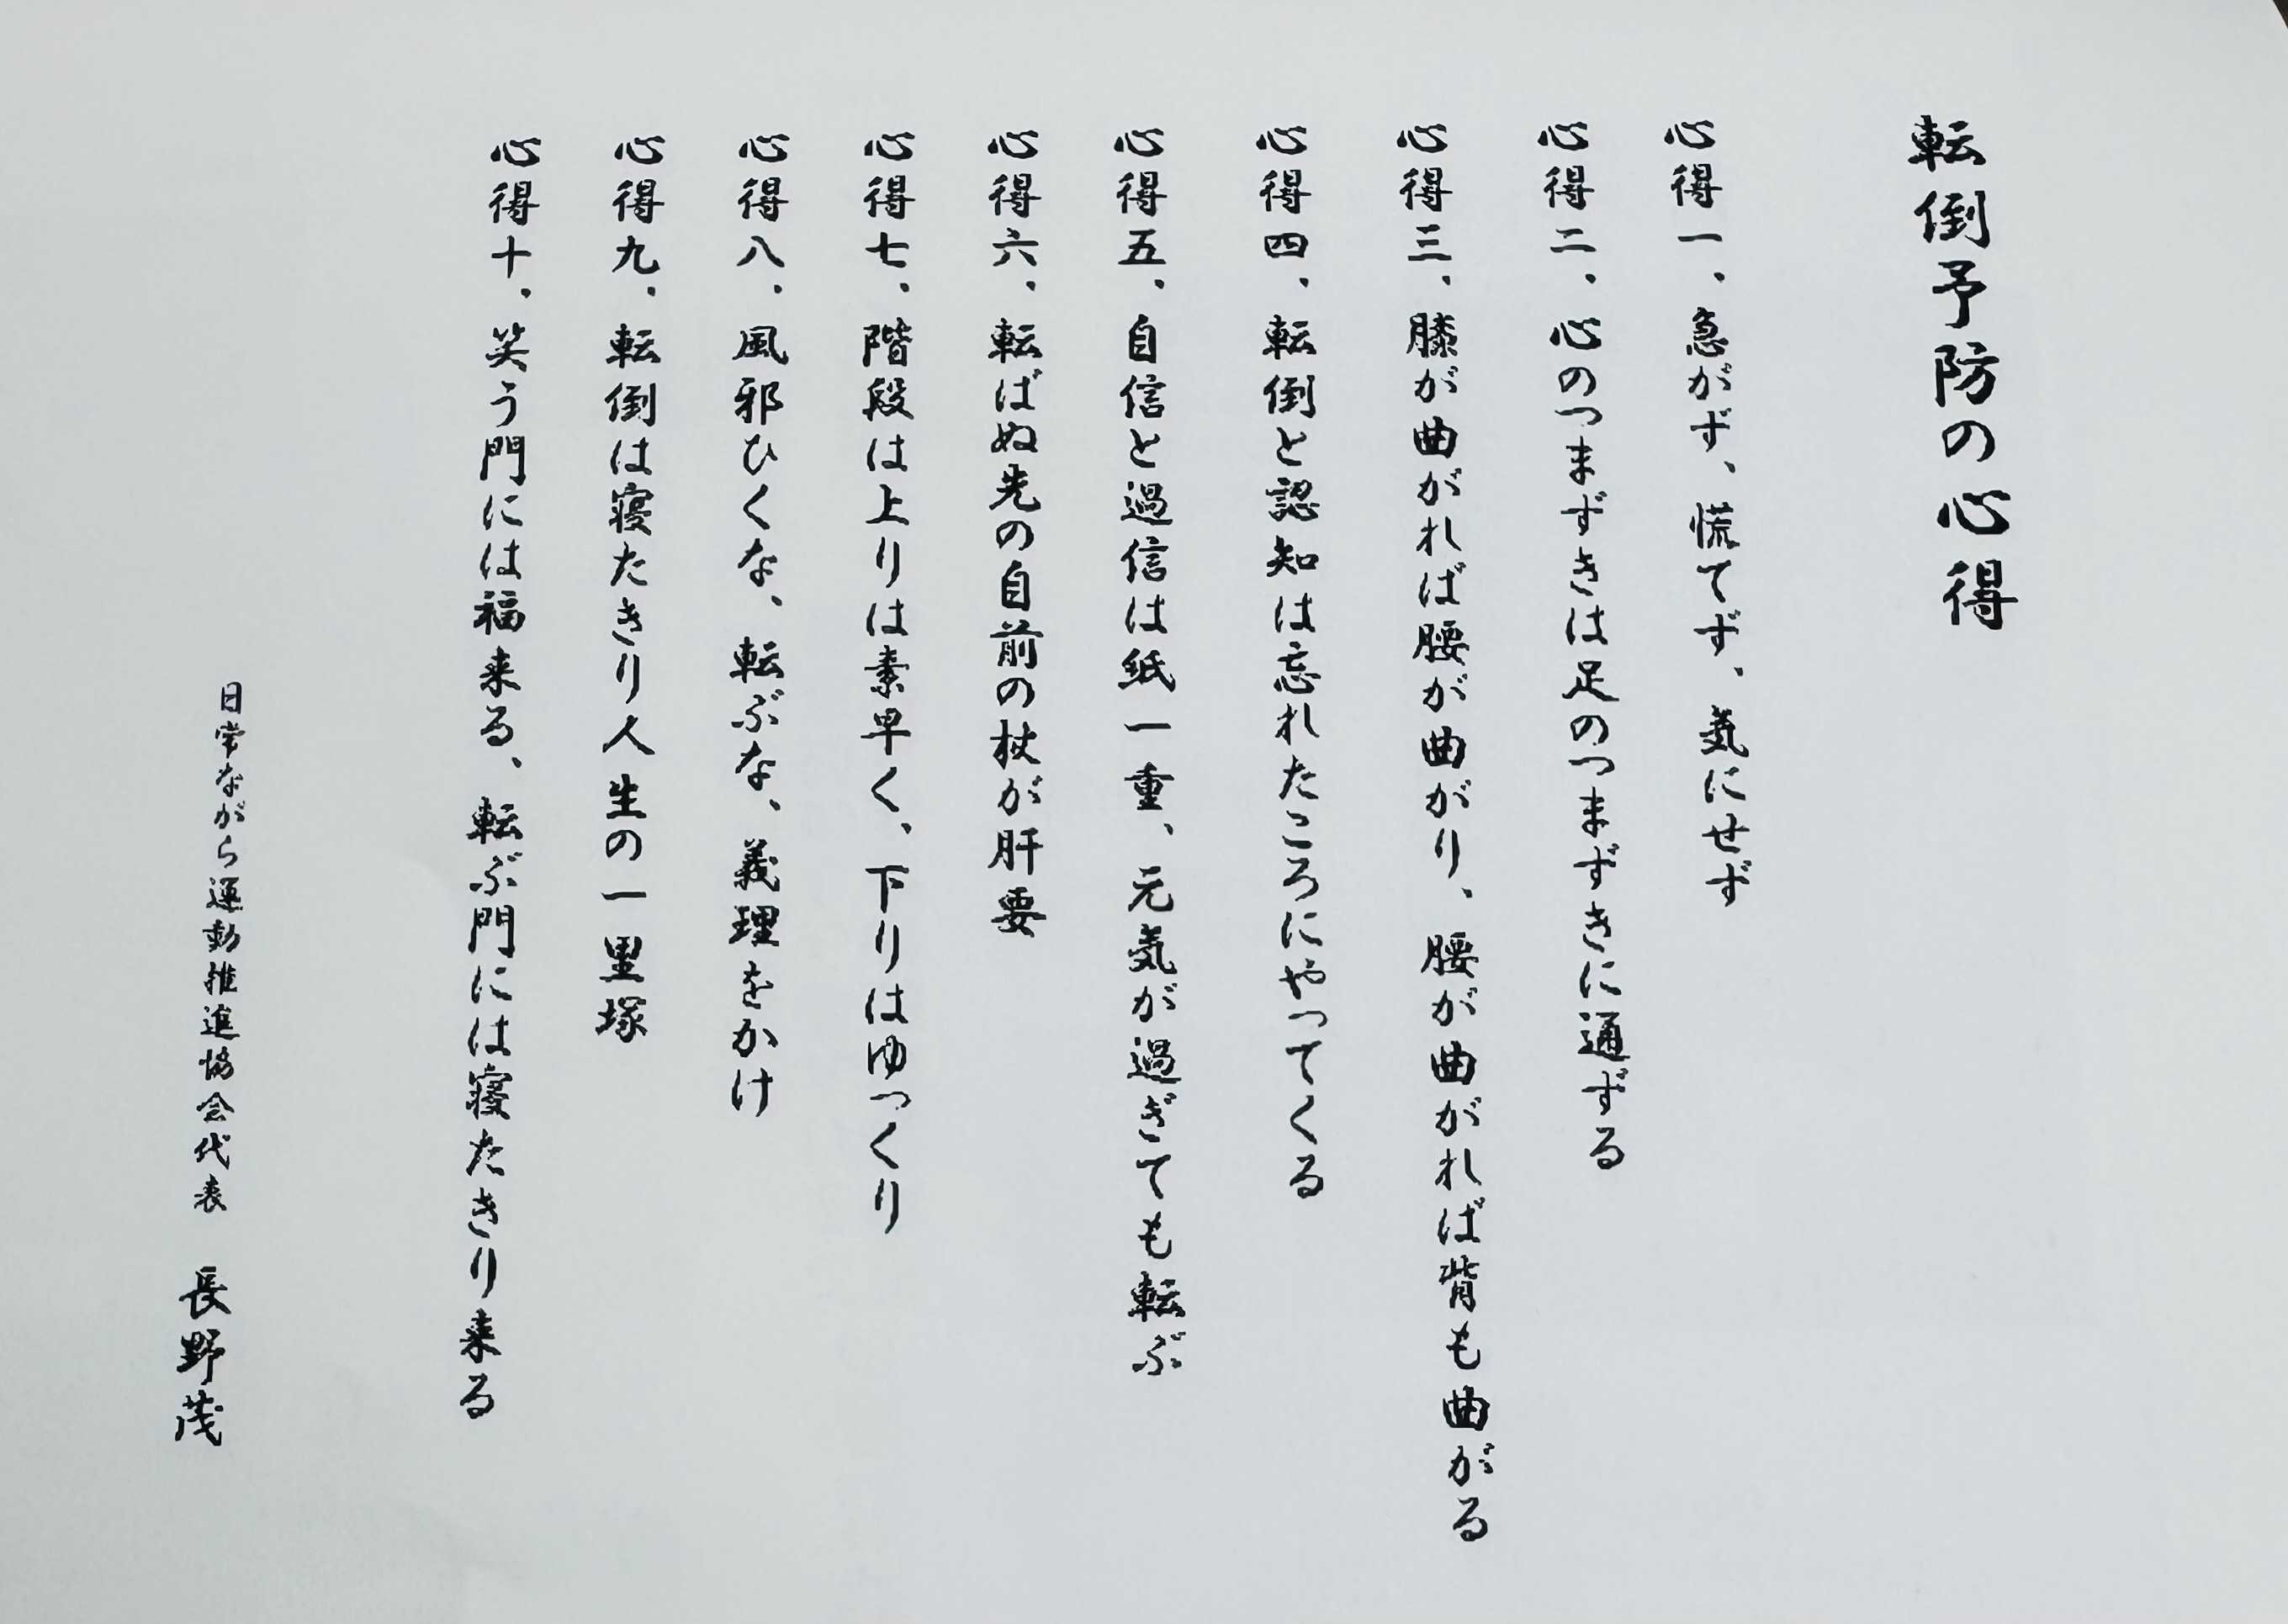 転倒予防の心得
心得一、急がず、慌てず、気にせず
心得二、心のつまずきは足のつまずきに通ずる
心得三、膝が曲がれば腰が曲がり、腰が曲がれば背も曲がる
心得四、転倒と認知は忘れたころにやってくる
心得五、自信と過信は紙一重、元気が過ぎても転ぶ
心得六、転ばぬ先の自前の杖が肝要
心得七、階段は上りは素早く、下りはゆっくり
心得八、風邪ひくな、転ぶな、義理をかけ
心得九、転倒は寝たきり人生の一里塚
心得十、笑う門には福来る、転ぶ門には寝たきり来る
日常ながら運動推進協会代表 長野茂